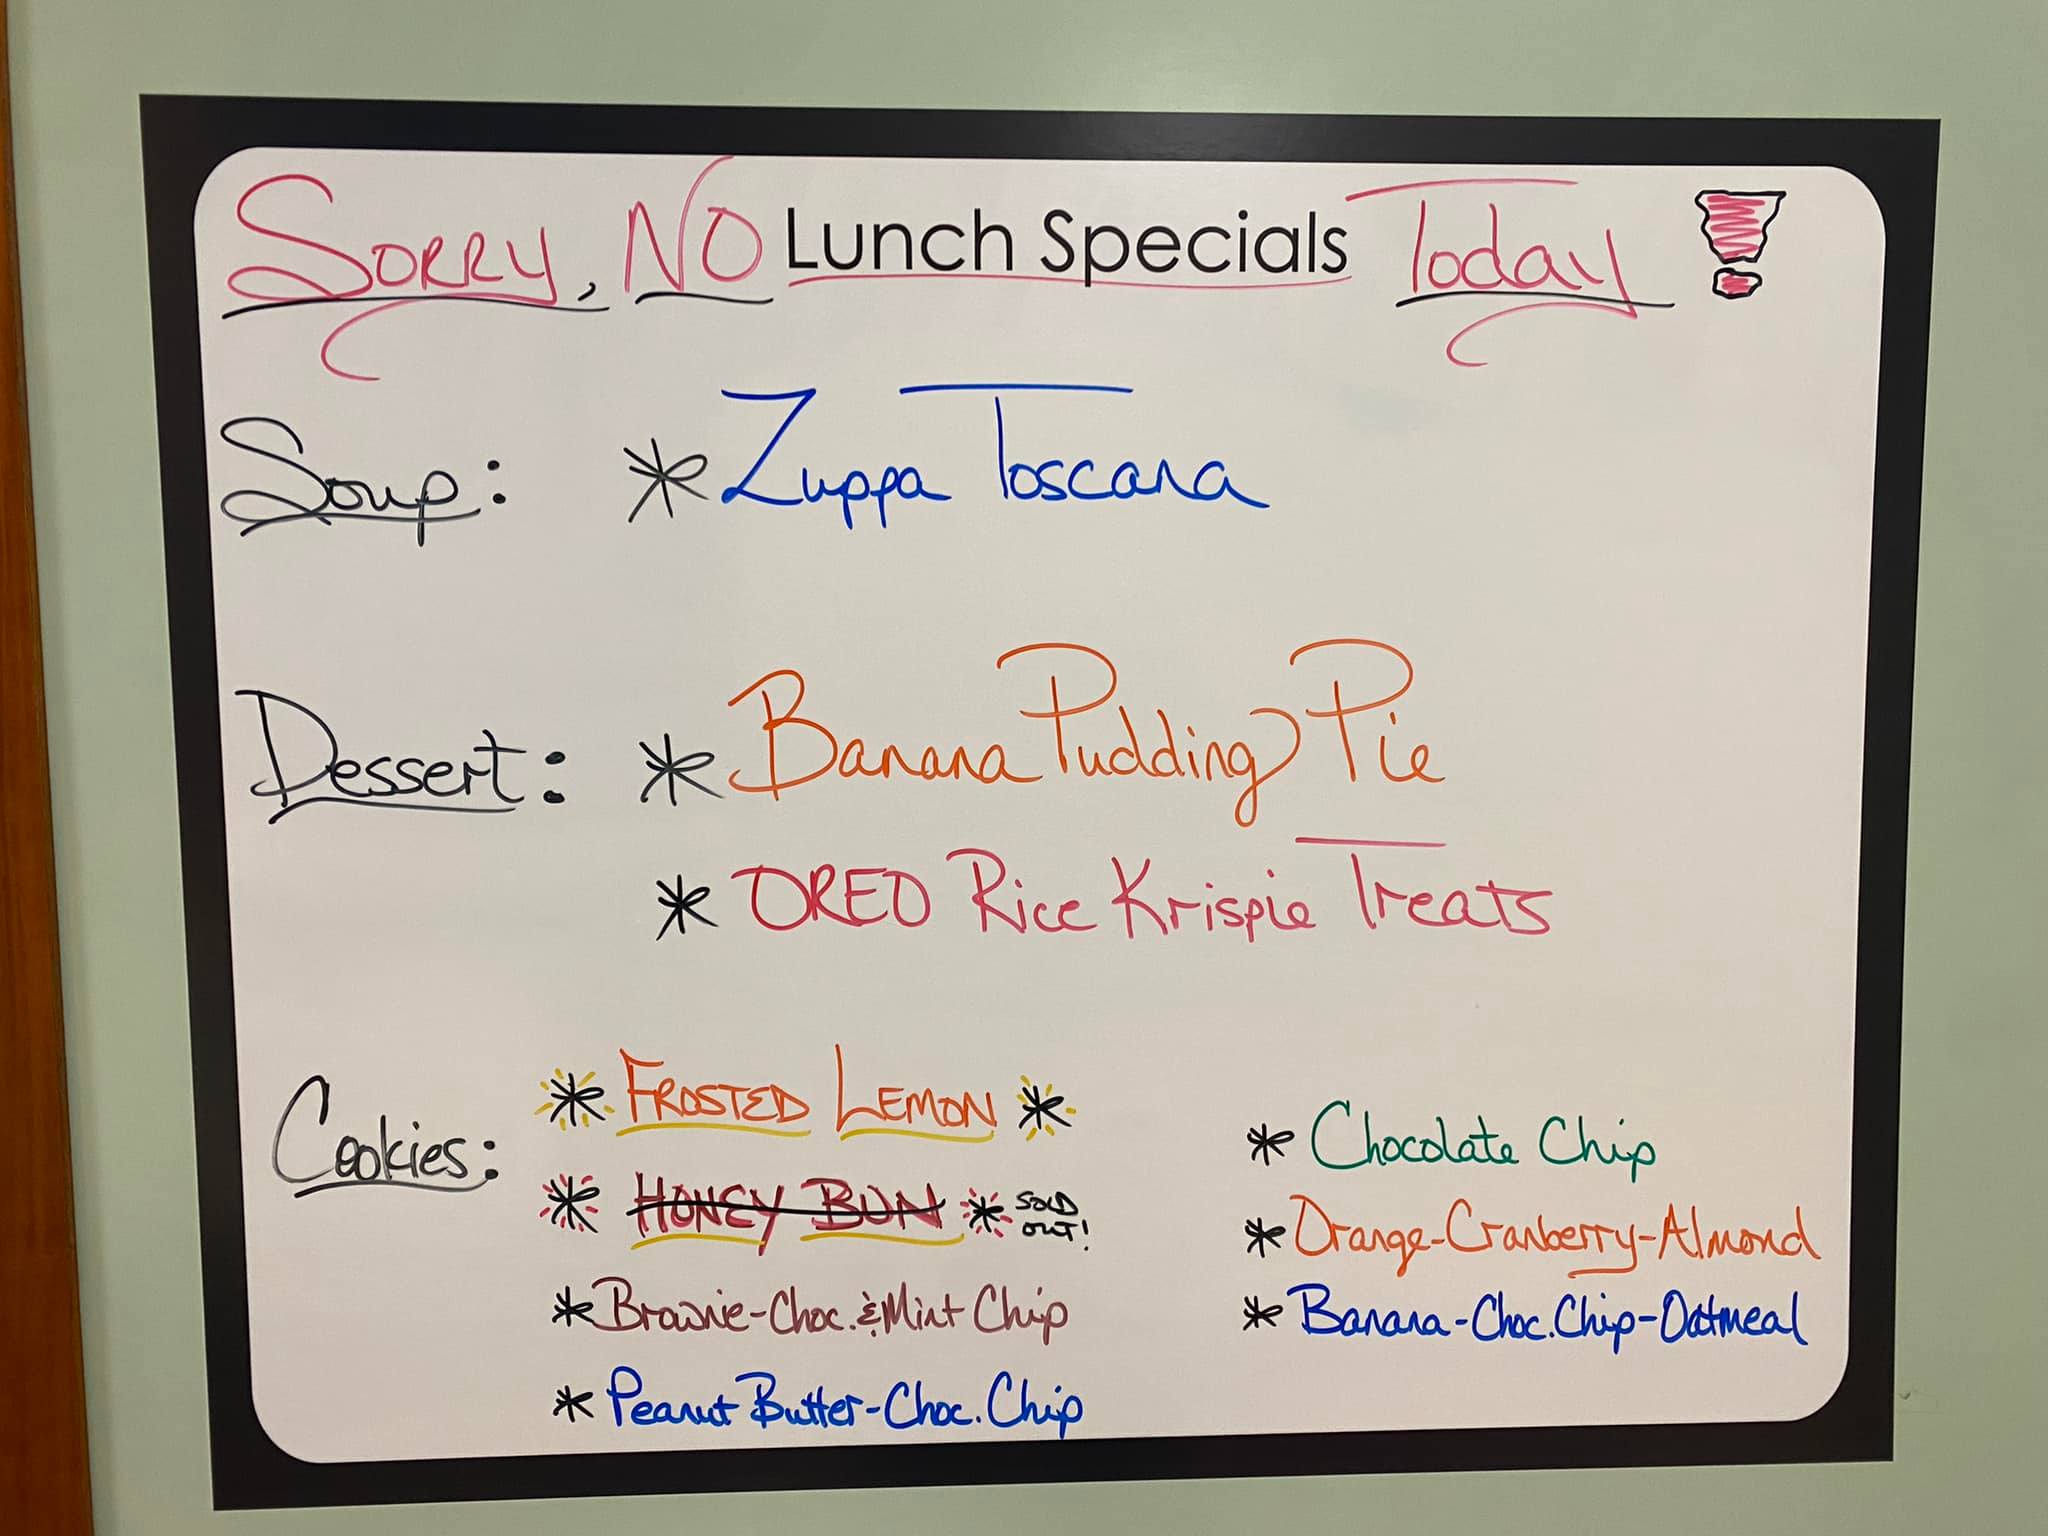 Sorry, NO Lunch Specials Today!
Soup: * Zuppa Toscana
Dessert: * Banana Pudding Pie
* OREO Rice Krispie Treats
Cookies: * FROSTED LEMON *
* HONEY BUN * SOLD OUT!
* Brownie-Choc. & Mint Chip
* Peanut Butter-Choc. Chip
* Chocolate Chip
* Orange-Cranberry-Almond
* Banana-Choc. Chip-Oatmeal